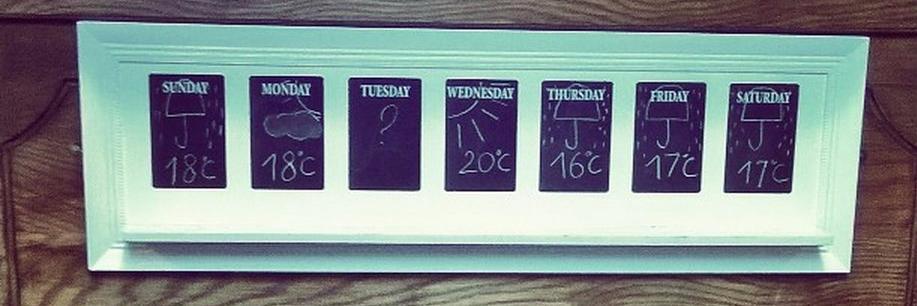 SUNDAY
18°C
MONDAY
18°C
TUESDAY
?
WEDNESDAY
20°C
THURSDAY
16°C
FRIDAY
17°C
SATURDAY
17°C